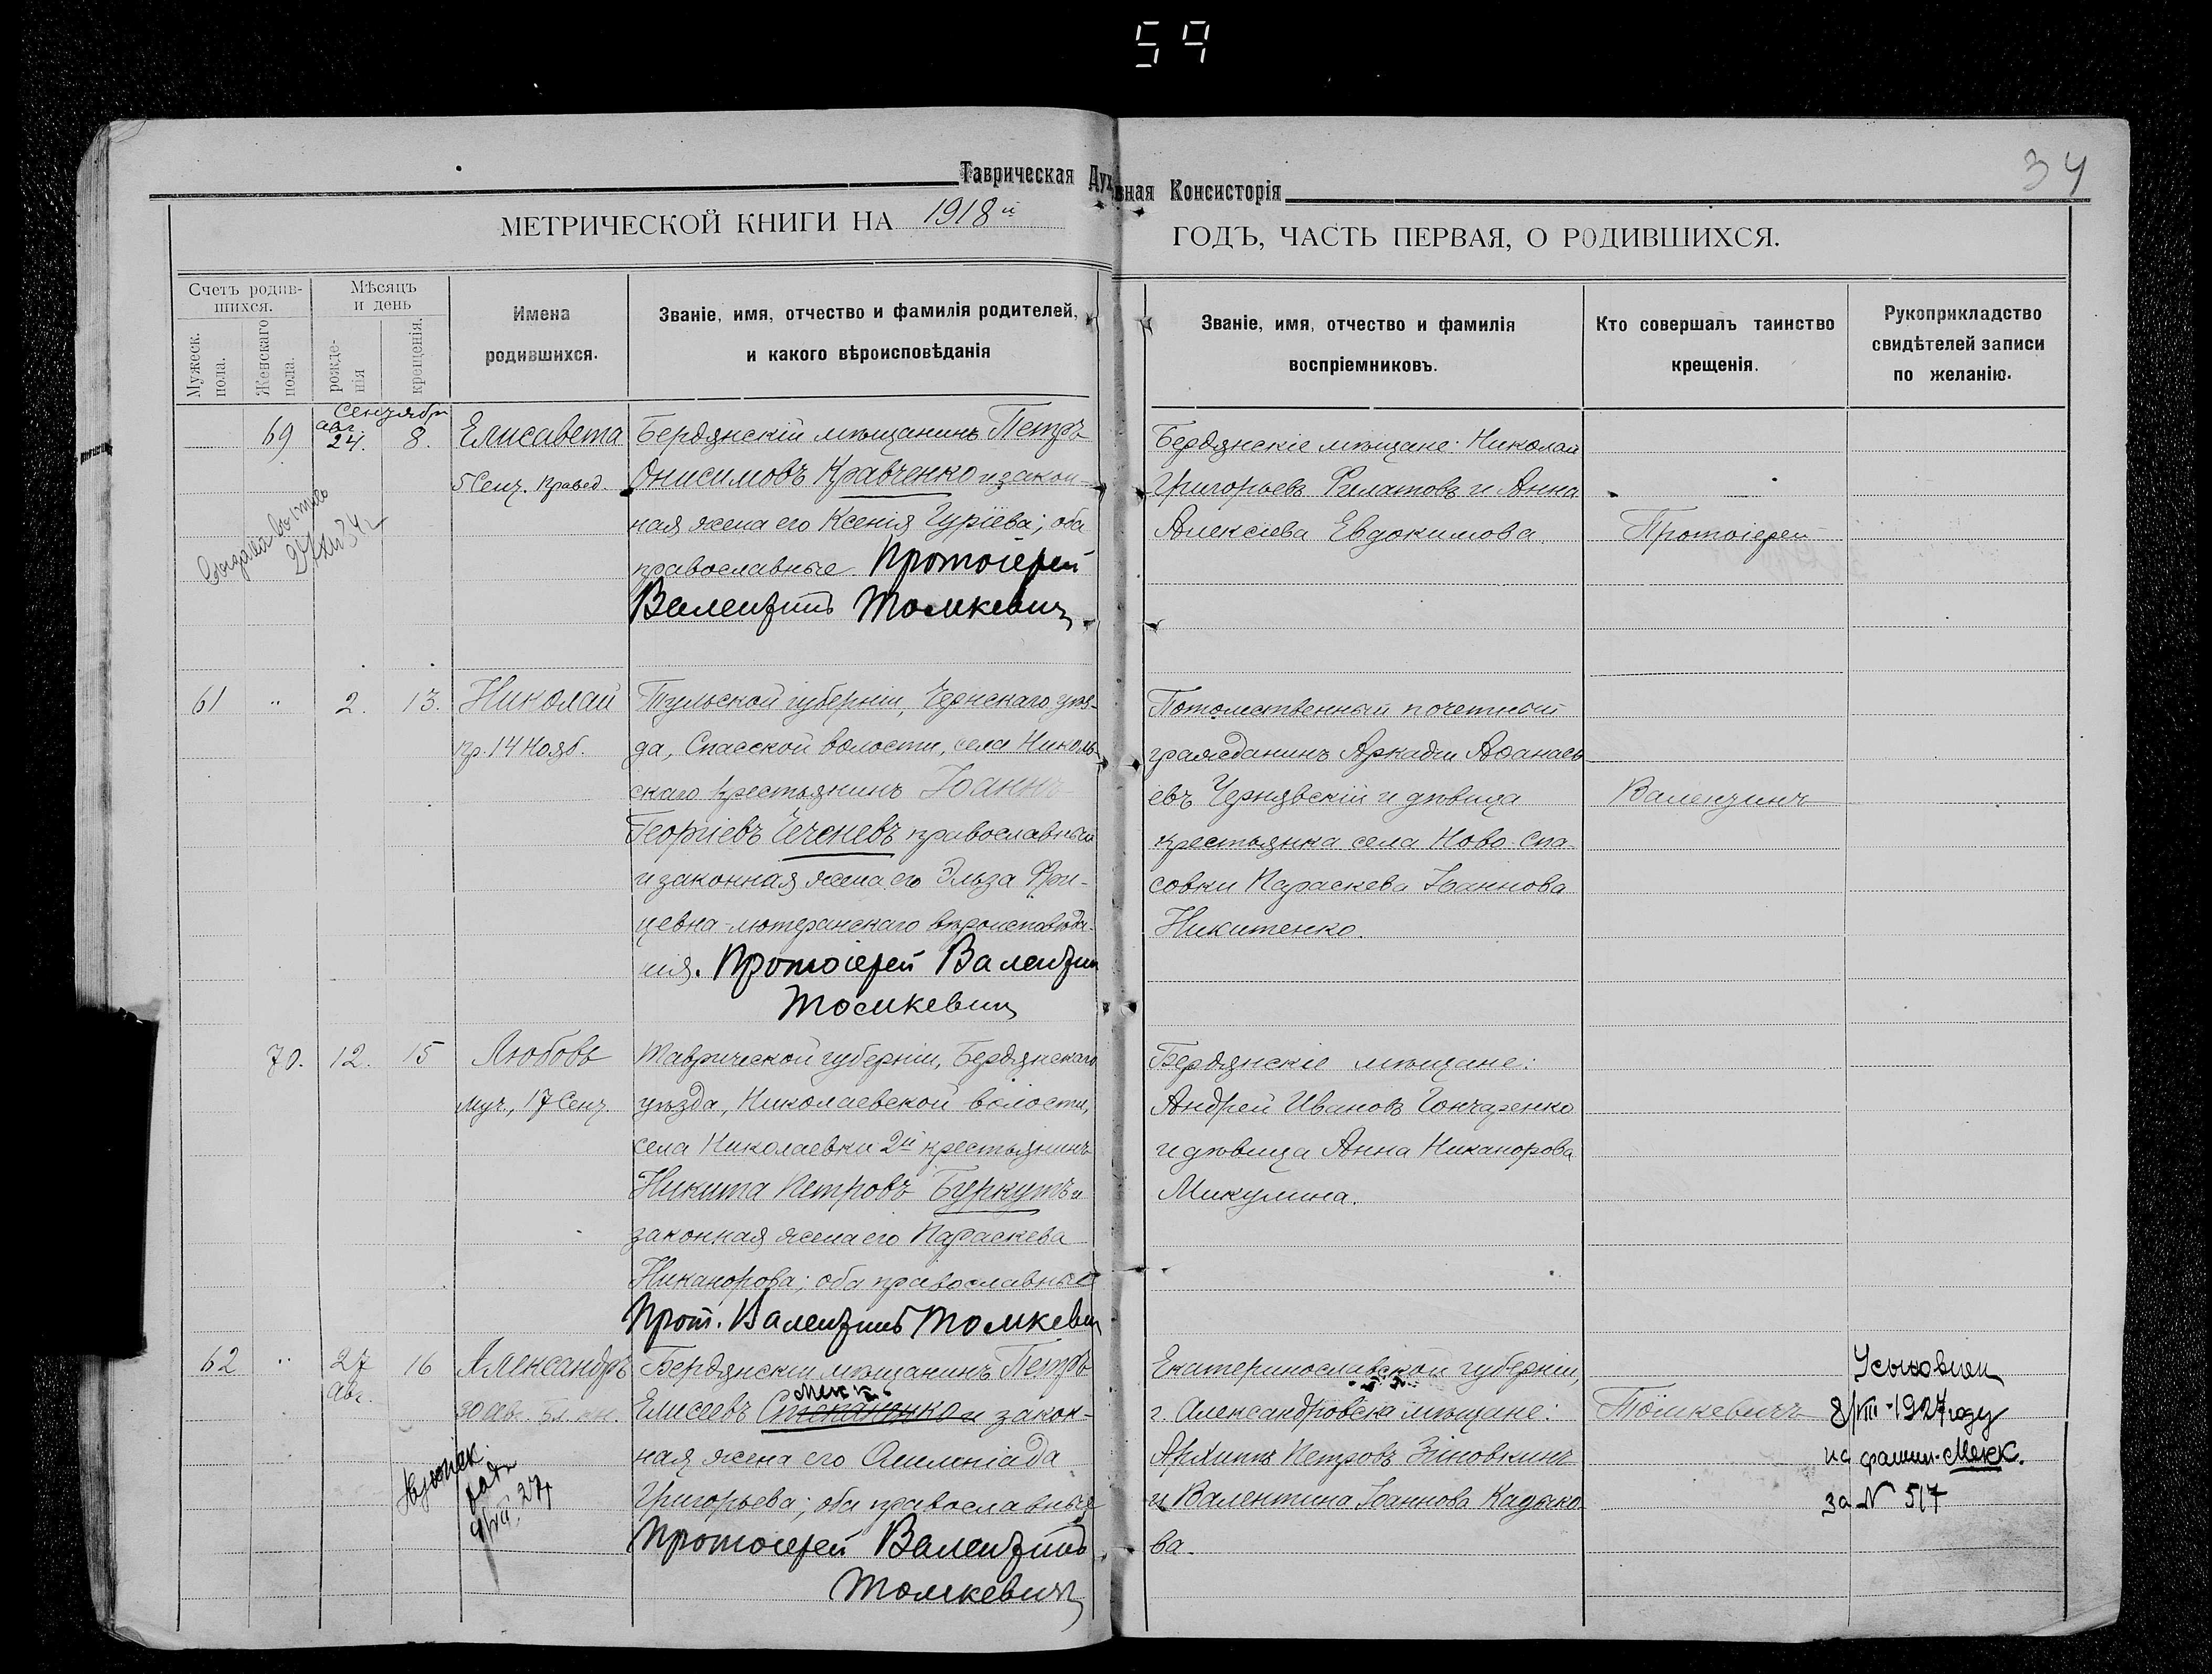 59
34
Таврическая Духовная Консисторія
МЕТРИЧЕСКОЙ КНИГИ НА 1918й ГОДЪ, ЧАСТЬ ПЕРВАЯ, О РОДИВШИХСЯ.
Счетъ родив-
шихся.
Мужеск.
пола.
Женскаго
пола.
Мѣсяцъ
и день
рожде-
нія
крещенія.
Имена
родившихся.
Званіе, имя, отчество и фамилія родителей,
и какого вѣроисповѣданія
Званіе, имя, отчество и фамилія
воспріемниковъ.
Кто совершалъ таинство
крещенія.
Рукоприкладство
свидѣтелей записи
по желанію.
Сентября
69 авг. 24. 8. Елисавета
5 Сент. Правед.
Бердянскій мѣщанинъ Петръ
Онисимовъ Кравченко и закон-
ная жена его Ксенія Гуріева; оба
православные. Протоіерей
Валентинъ Томкевич
Бердянскіе мѣщане: Николай
Григорьевъ Филатовъ и Анна
Алексіева Евдокимова.
Протоіерей
61 " 2. 13. Николай
пр. 14 Нояб.
Тульской губерніи, Чернскаго уѣз-
да, Спасской волости, села Николь-
скаго крестьянинъ Іоаннъ
Георгіевъ Чеченевъ православный
и законная жена его Эльза Фри-
цевна-лютеранскаго вѣроисповѣда-
нія. Протоіерей Валентин
Томкевич
Потомственный почетный
гражданинъ Аркадій Аѳанась
евъ Чернявскій и дѣвица
крестьянка села Ново-Спа-
совки Параскева Іоаннова
Никитенко.
Валентинъ
70. 12. 15 Любовь
муч., 17 Сент.
Таврической губерніи, Бердянскаго
уѣзда, Николаевской волости,
села Николаевки 2й крестьянинъ
Никита Петровъ Буркутъ и
законная жена его Параскева
Никанорова; оба православные
Прот. Валентинъ Томкевич
Бердянскіе мѣщане:
Андрей Ивановъ Гончаренко
и дѣвица Анна Никанорова
Микулина.
62 " 27 авг. 16 Александръ
30 Авг. Бл. кн.
Бердянскій мѣщанинъ Петръ
Меккъ
Елисеевъ и закон-
ная жена его Олимпіада
Григорьева; оба православные
Протоіерей Валентинъ
Томкевич
Екатеринославской губерніи,
г. Александровска мѣщане:
Архиппъ Петровъ Зиновкинъ
и Валентина Іоаннова Кадыко-
ва.
Томкевичъ
Усыновлен
8/VIII-1927 году
на фамил. Мекк.
за № 517